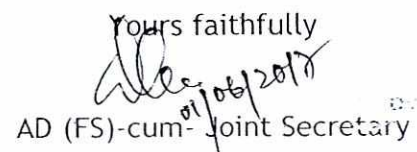 Yours faithfully
01/06/2017
AD (FS)-cum- Joint Secretary